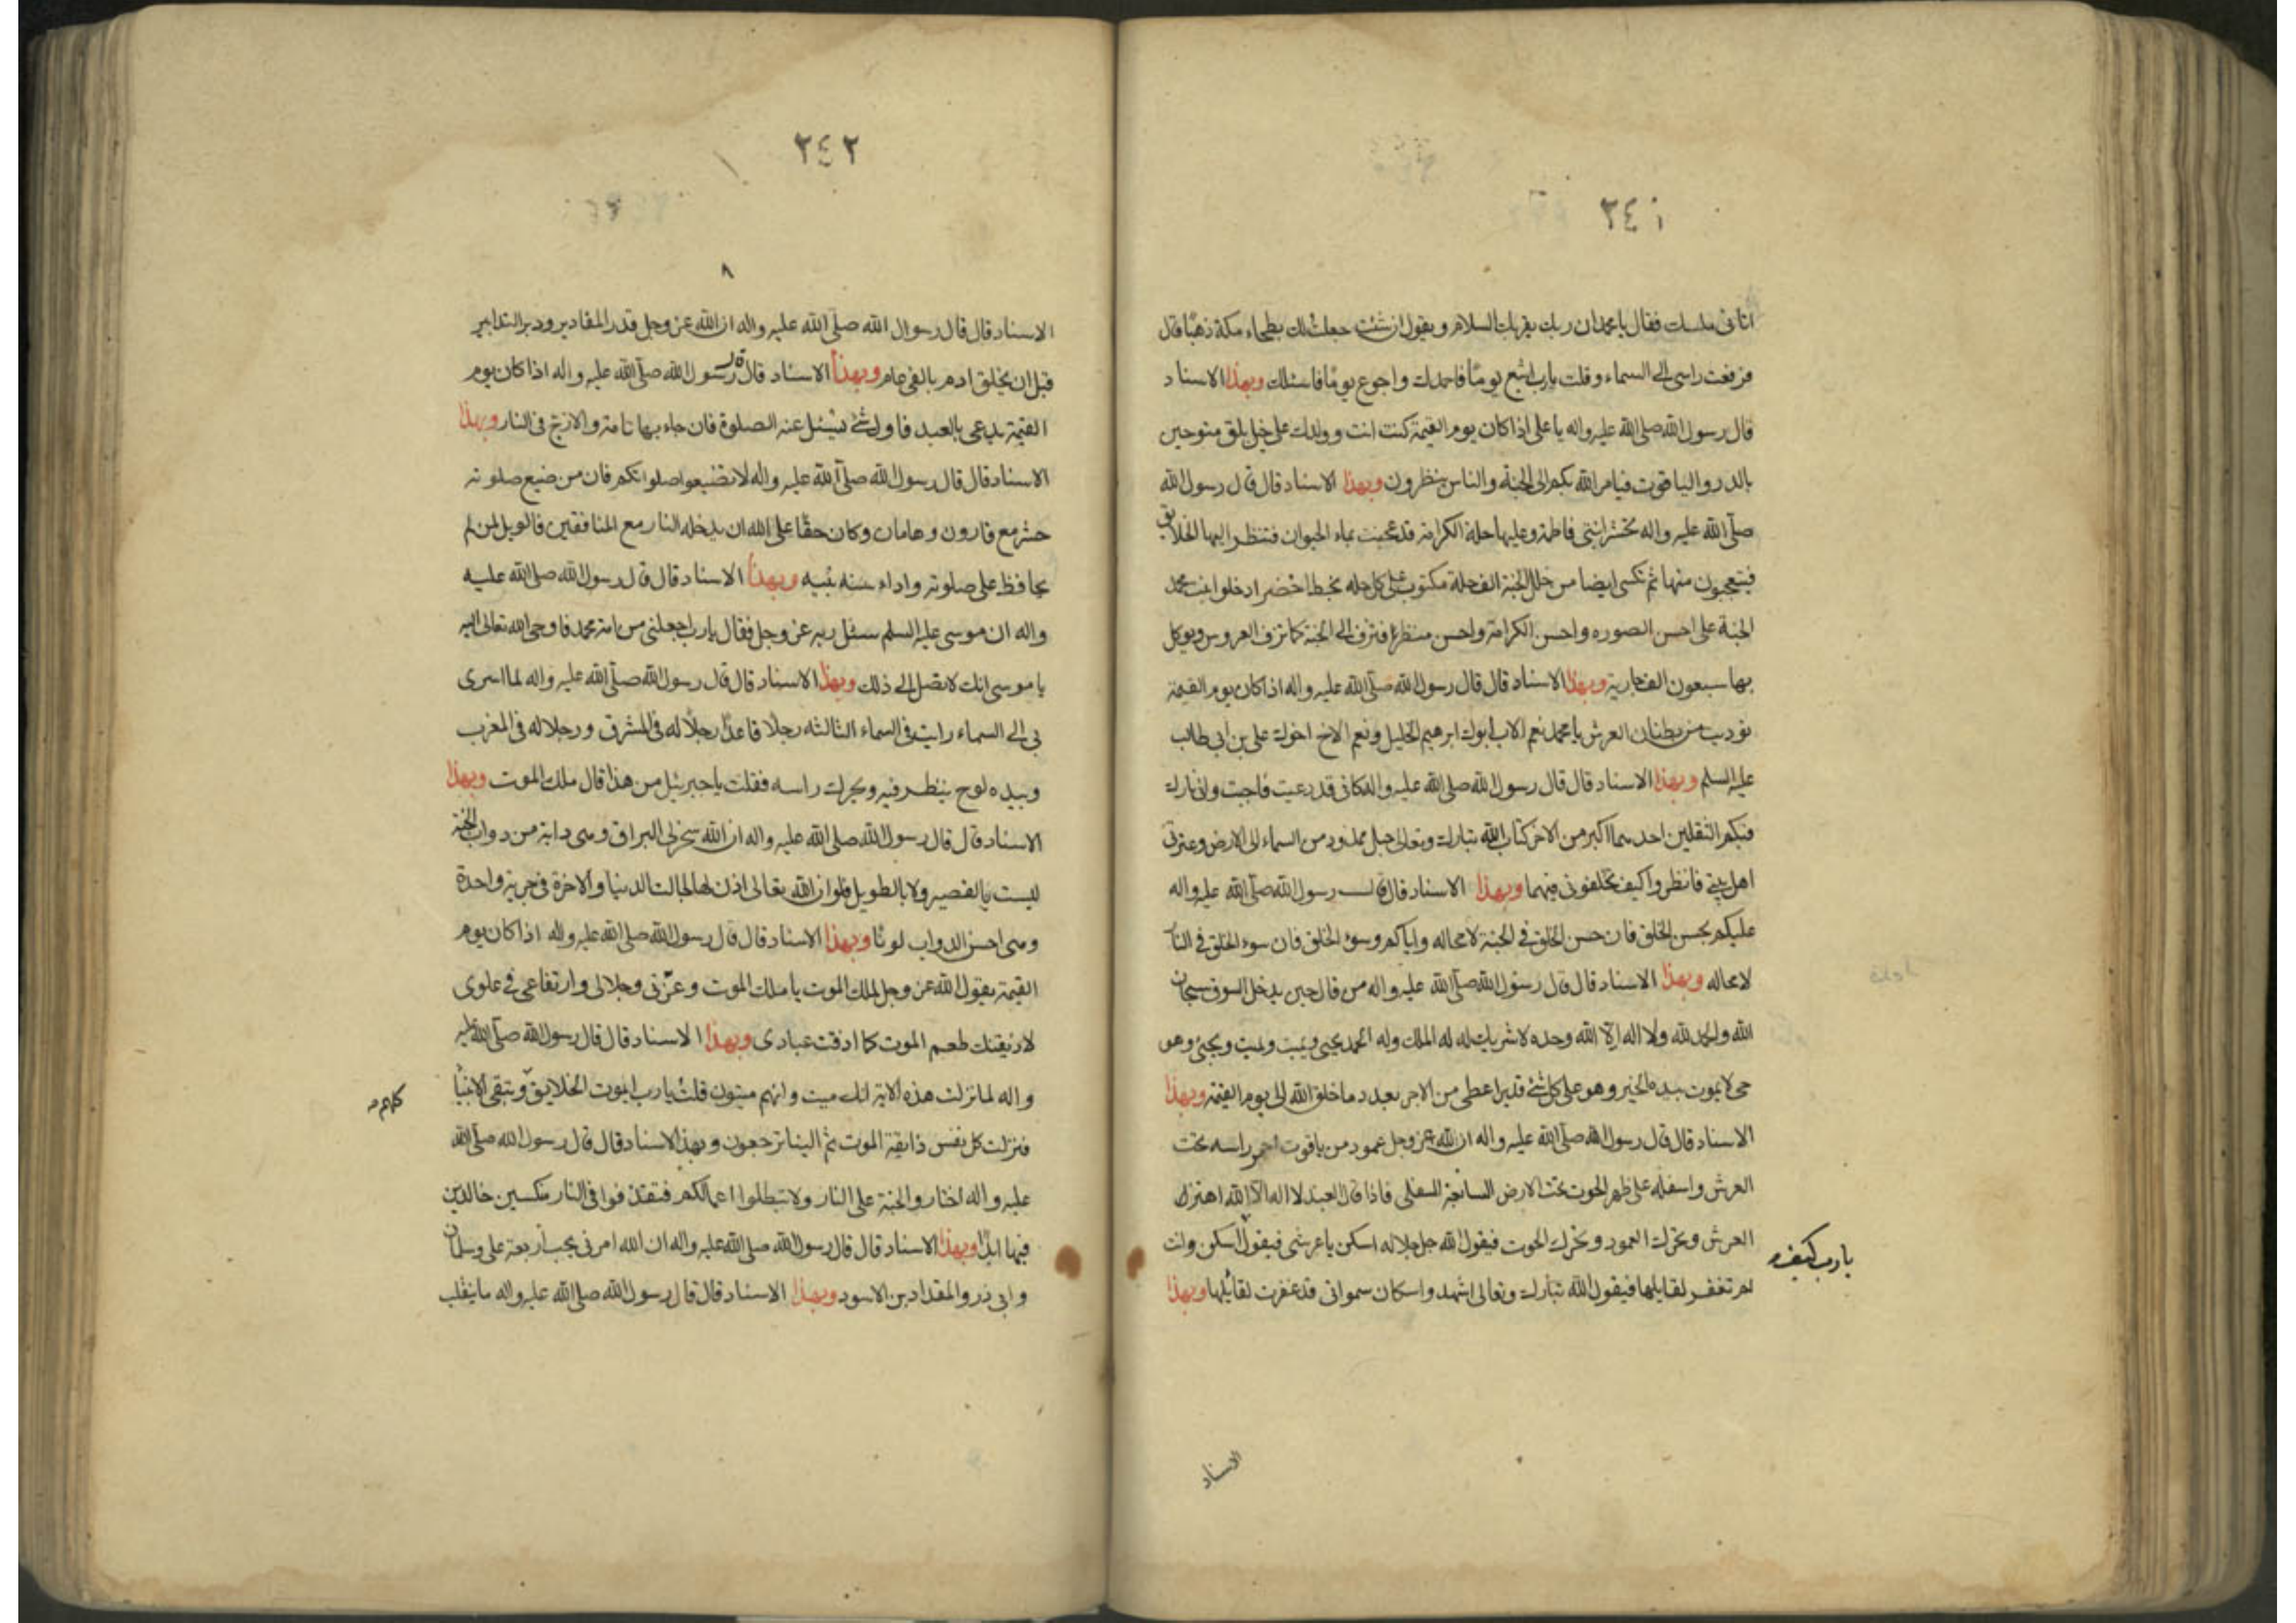 ٢٤١
اتانى ملك فقال يا محمد ان ربك يقرئك السلام ويقول ان شئت جعلت لك بطحاء مكة ذهبا قال
فرفعت راسى الى السماء وقلت يارب اشبع يوما فاحمدك واجوع يوما فاسئلك وبهذا الاسناد
قال رسول الله صلى الله عليه واله يا على اذا كان يوم القيمة كنت انت وولدك على خيل بلق متوجين
بالدر والياقوت فيامر الله بكم الى الجنة والناس ينظرون وبهذا الاسناد قال قال رسول الله
صلى الله عليه واله تحشر ابنتى فاطمة وعليها حلة الكرامة قد عجنت بماء الحيوان فتنظر اليها الخلايق
فيتعجبون منها ثم تكسى ايضا من حلل الجنة الف حلة مكتوب على كل حله بخط اخضر ادخلوا ابنت محمد
الجنة على احسن الصوره واحسن الكرامة واحسن منظرا فتزف الى الجنة كما تزف العروس ويوكل
بها سبعون الف جارية وبهذا الاسناد قال قال رسول الله صلى الله عليه واله اذا كان يوم القيمة
نوديت من بطنان العرش يا محمد نعم الاب ابوك ابرهيم الخليل ونعم الاخ اخوك على بن ابى طالب
عليه السلم وبهذا الاسناد قال قال رسول الله صلى الله عليه واله كانى قد دعيت فاجبت وانى تارك
فيكم الثقلين احدهما اكبر من الاخر كتاب الله تبارك وتعالى حبل ممدود من السماء الى الارض وعترتى
اهل بيتى فانظروا كيف تخلفونى فيهما وبهذا الاسناد قال قال رسول الله صلى الله عليه واله
عليكم بحسن الخلق فان حسن الخلق فى الجنة لا محاله واياكم وسوء الخلق فان سوء الخلق فى النار
لا محاله وبهذا الاسناد قال قال رسول الله صلى الله عليه واله من قال حين يدخل السوق سبحان
الله والحمد لله ولا اله الا الله وحده لا شريك له له الملك وله الحمد يحيى ويميت ويميت ويحيى وهو
حى لا يموت بيده الخير وهو على كل شئ قدير اعطى من الاجر بعدد ما خلق الله الى يوم القيمة وبهذا
الاسناد قال قال رسول الله صلى الله عليه واله ان لله عز وجل عمود من ياقوت احمر راسه تحت
العرش واسفله على ظهر الحوت تحت الارض السابعة السفلى فاذا قال العبد لا اله الا الله اهتزت
العرش وتحرك العمود وتحرك الحوت فيقول الله جل جلاله اسكن يا عرشى فيقول اسكن وانت
يارب كيف
لم تغفر لقايلها فيقول الله تبارك وتعالى اشهدوا سكان سمواتى قد غفرت لقايلها وبهذا
الاسناد
٢٤٢
٨
الاسناد قال قال رسوال الله صلى الله عليه واله ان الله عز وجل قدر المقادير ودبر التدابير
قبل ان يخلق ادم بالفى عام وبهذا الاسناد قال قال رسول الله صلى الله عليه واله اذا كان يوم
القيمة يدعى بالعبد فاول شئ يسئل عنه الصلوة فان جاء بها تامة والا زج فى النار وبهذا
الاسناد قال قال رسول الله صلى الله عليه واله لا تضيعوا صلواتكم فان من ضيع صلوته
حشر مع قارون وهامان وكان حقا على الله ان يدخله النار مع المنافقين فالويل لمن لم
يحافظ على صلوته واداء سنه نبيه وبهذا الاسناد قال قال رسول الله صلى الله عليه
واله ان موسى عليه السلم سئل ربه عز وجل فقال يا رب اجعلنى من امة محمد فاوحى الله تعالى اليه
يا موسى انك لا تصل الى ذلك وبهذا الاسناد قال قال رسول الله صلى الله عليه واله لما اسرى
بى الى السماء رايت فى السماء الثالثه رجلا قاعدا رجلا له فى المشرق ورجلا له فى المغرب
وبيده لوح ينظر فيه ويحرك راسه فقلت يا جبرئيل من هذا قال ملك الموت وبهذا
الاسناد قال قال رسول الله صلى الله عليه واله ان الله سخر لى البراق وهى دابة من دواب الجنة
ليست بالقصير ولا بالطويل فلو ان الله تعالى اذن لها لجالت الدنيا والاخرة فى جرية واحدة
وهى احسن الدواب لونا وبهذا الاسناد قال قال رسول الله صلى الله عليه واله اذا كان يوم
القيمة يقول الله عز وجل لملك الموت يا ملك الموت وعزتى وجلالى وارتفاعى فى علوى
لاذيقنك طعم الموت كما اذقت عبادى وبهذا الاسناد قال قال رسول الله صلى الله عليه
واله لما نزلت هذه الاية انك ميت وانهم ميتون قلت يا رب ايموت الخلايق وتبقى الانبيا
كلهم
فنزلت كل نفس ذايقة الموت ثم الينا ترجعون وبهذ الاسناد قال قال رسول الله صلى الله
عليه واله اختار والجنة على النار ولا تبطلوا اعمالكم فتقذفوا فى النار منكسين خالدين
فيها ابدا وبهذا الاسناد قال قال رسول الله صلى الله عليه واله ان الله امرنى بحب اربعة على وسلمان
وابى ذر والمقداد بن الاسود وبهذا الاسناد قال قال رسول الله صلى الله عليه واله ما ينقلب